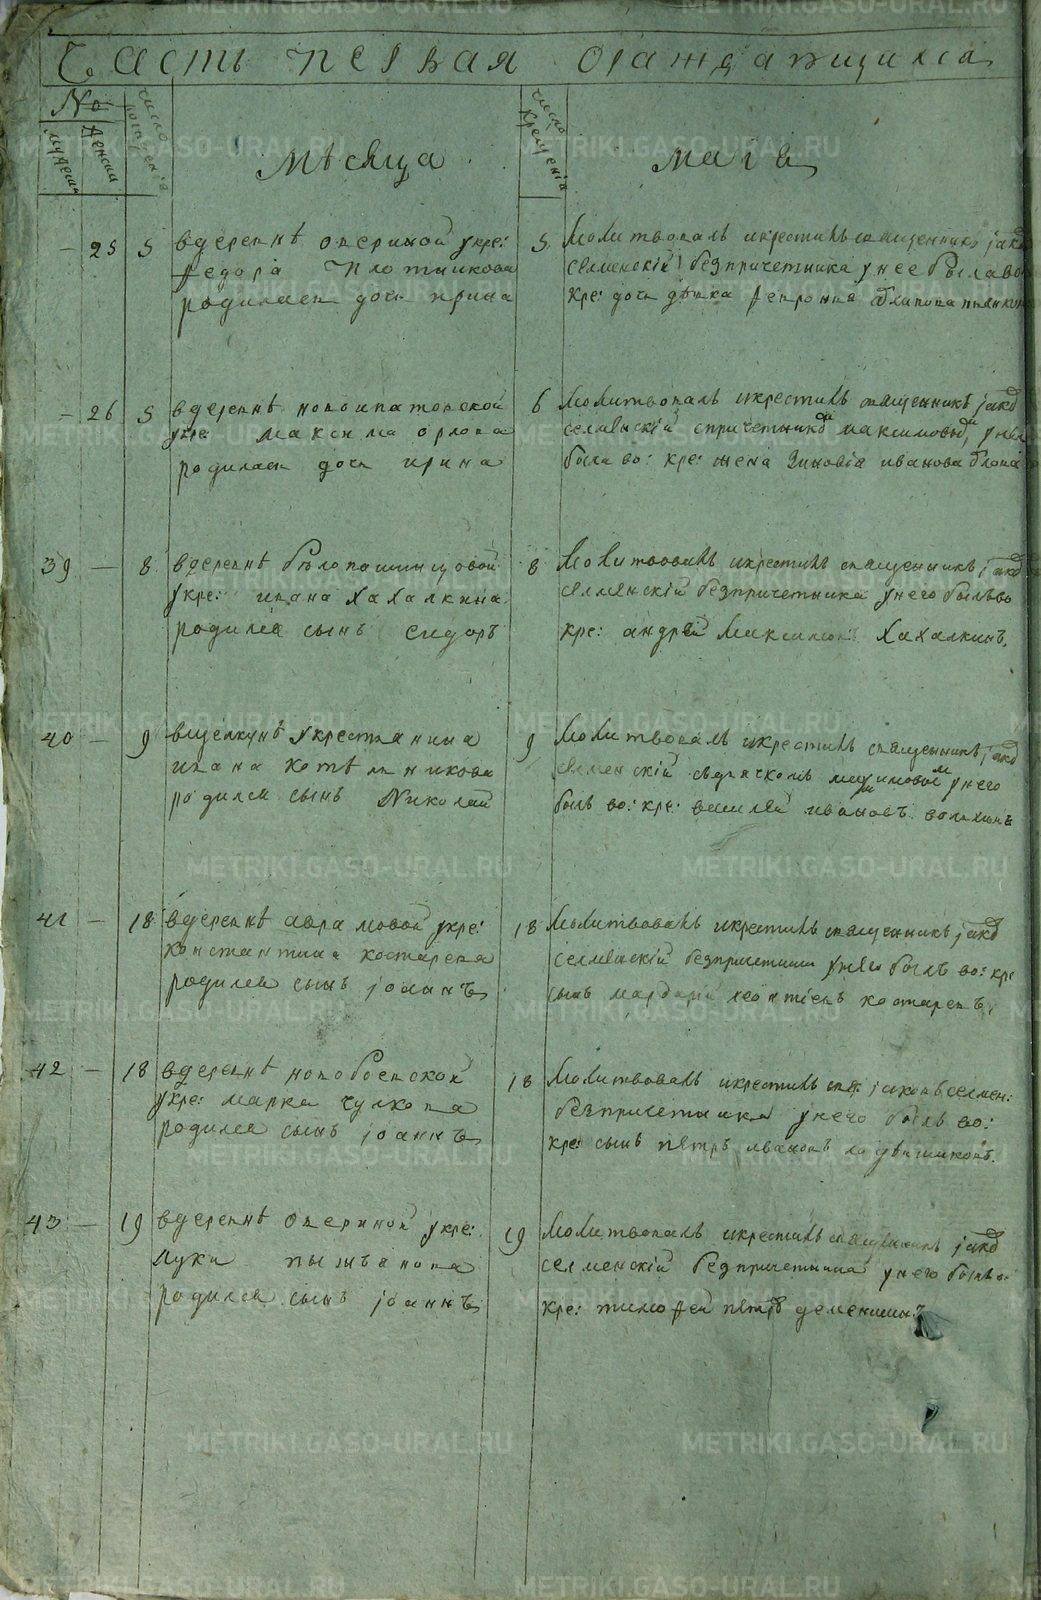 Часть первая о раждающихся
№
мужеска
женска
число рождения
Мѣсяца
число крещенія
маія
25 5 в деревнѣ опериной у кре:
федора Плотникова
родилась дочь ирина
5 Молитвовалъ и крестилъ священникъ іаковъ
селменскій без причетника у нее была во
кре: дочь дѣвка
26 5 в деревнѣ новоипатовской
у кре: максима орлова
родилась дочь ирина
6 Молитвовалъ и крестилъ священникъ іаковъ
селменскій с причетникомъ максимовымъ у нея
была во: кре: жена Зиновіа иванова
39 8 в деревнѣ бѣлопашинцовой
у кре: ивана Хахалкина
родился сынъ сидоръ
8 Молитвовалъ и крестилъ священникъ іаковъ
селменскій без причетника у него былъ во
кре: андрей Максимовъ Хахалкинъ
40 9 в щелкунѣ у крестьянина
ивана котельникова
родился сынъ Николай
9 Молитвовалъ и крестилъ священникъ іаковъ
селменскій съ дьячкомъ у него
былъ во: кре: василей ивановъ
41 18 в деревнѣ аврамовой у кре:
константина костарева
родился сынъ іоаннъ
18 Молитвовалъ и крестилъ священникъ іаковъ
селменскій без причетника у него былъ во: кре
сынъ мардарій леонтіевъ костаревъ
42 18 в деревнѣ новобоевской
у кре: марка чулкова
родился сынъ іоаннъ
18 Молитвовалъ и крестилъ свщ: іаковъ селмен:
без причетника у него былъ во:
кре: сынъ петръ ивановъ
43 19 в деревнѣ опериной у кре:
луки пьянкова
родился сынъ іоаннъ
19 Молитвовалъ и крестилъ священникъ іаковъ
селменскій без причетника у него былъ во
кре: тимофей петровъ деменшинъ
METRIKI.GASO-URAL.RU